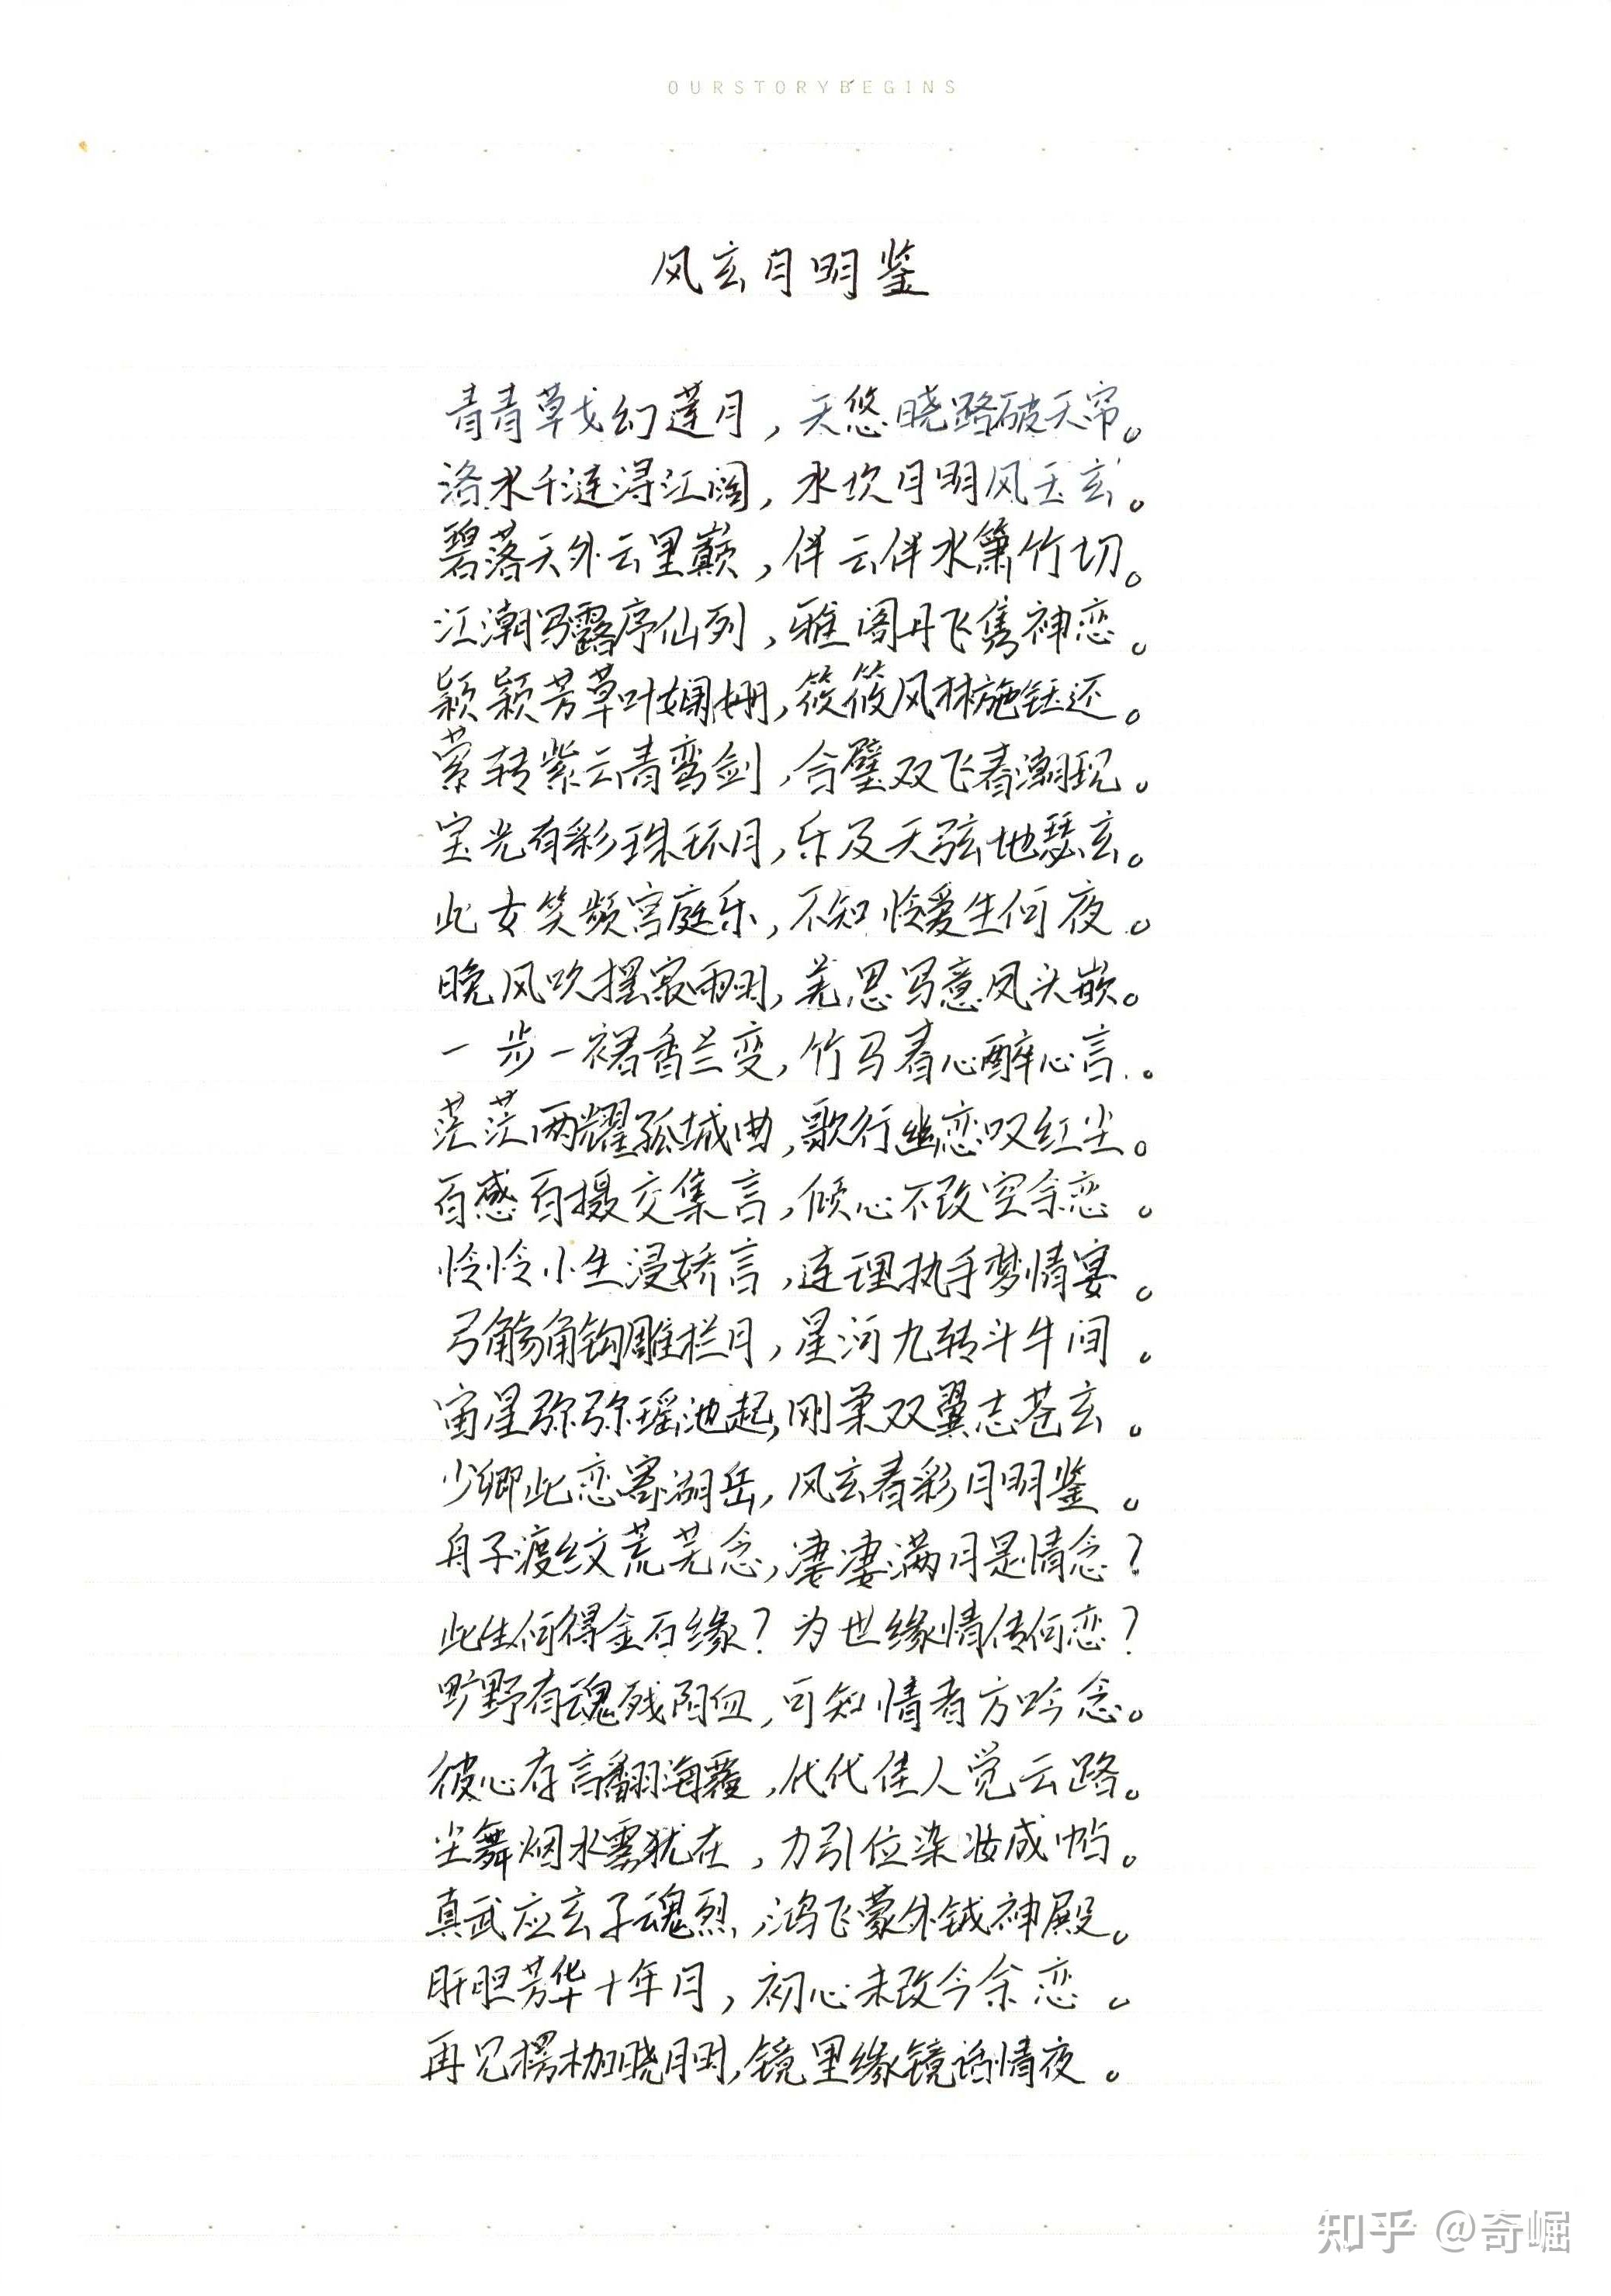 OURSTORYBEGINS
风玄月明鉴
青青草戈幻莲月，天悠晓路破天帘。
洛水千涟浔江阔，水坎月明风玉玄。
碧落天外云里巅，伴云伴水箫竹切。
江潮写露序仙列，雅阁丹飞隽神恋。
颖颖芳草叶斓姗，筱筱风林施钰还。
萦转紫云青鸾剑，合璧双飞春潮现。
宝光有彩珠环月，乐及天弦地瑟玄。
此女笑频宫庭乐，不知怜爱生何夜。
晚风吹摆寂雨明，羌思写意凤头嵌。
一步一裙香兰变，竹马春心醉心言。
茫茫两耀孤城曲，歌行幽恋叹红尘。
百感百摄交集言，倾心不改空余恋。
怜怜小生浸娇言，连理执手梦情宴。
弓觞角钩雕栏月，星河九转斗牛间。
宙星弥弥瑶池起，刚柔双翼志苍玄。
少卿此恋寄湖岳，风玄春彩月明鉴。
舟子渡纹荒芜念，凄凄满月是情念？
此生何得金石缘？为世缘情传何恋？
旷野有魂残阳血，可知情者方吟念。
彼心存言翻海覆，代代佳人觉云路。
尘舞烟水雾犹在，力引位染妆成帖。
真武应玄子魂烈，鸿飞蒙外钺神殿。
肝胆芳华十年月，初心未改今余恋。
再见楞枷晓月明，镜里缘镜话情夜。
知乎 @奇崛